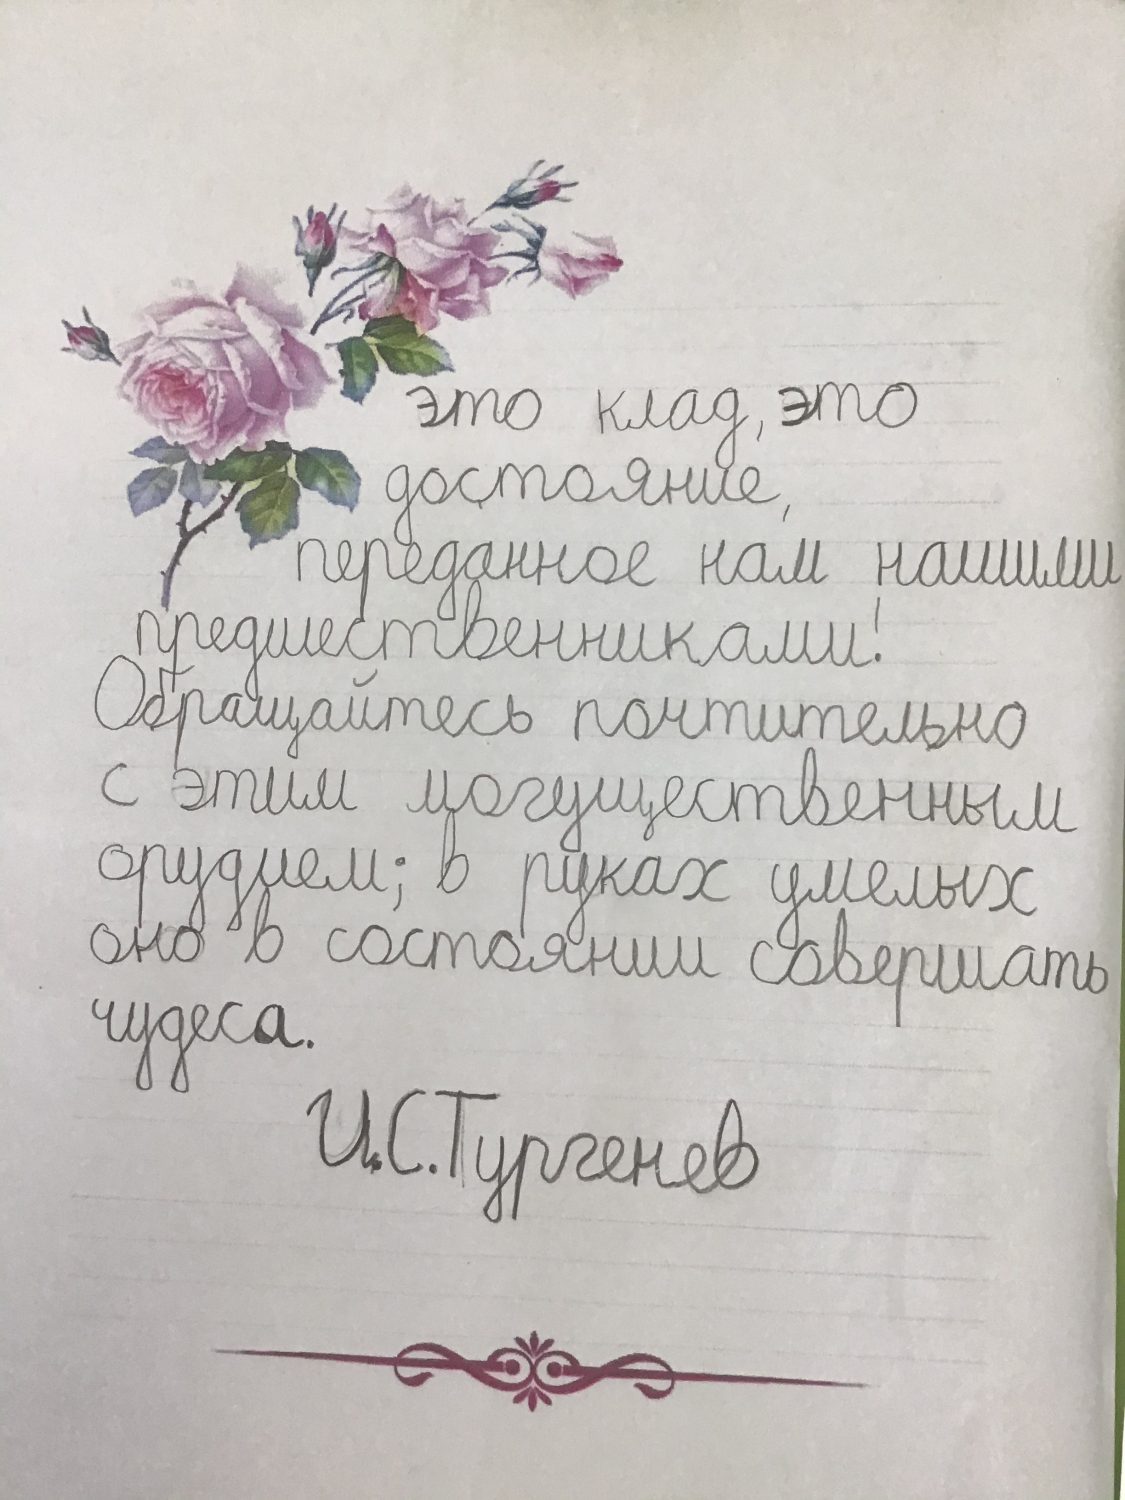 это клад, это
достояние,
переданное нам нашими
предшественниками!
Обращайтесь почтительно
с этим могущественным
орудием; в руках умелых
оно в состоянии совершать
чудеса.
И.С.Тургенев